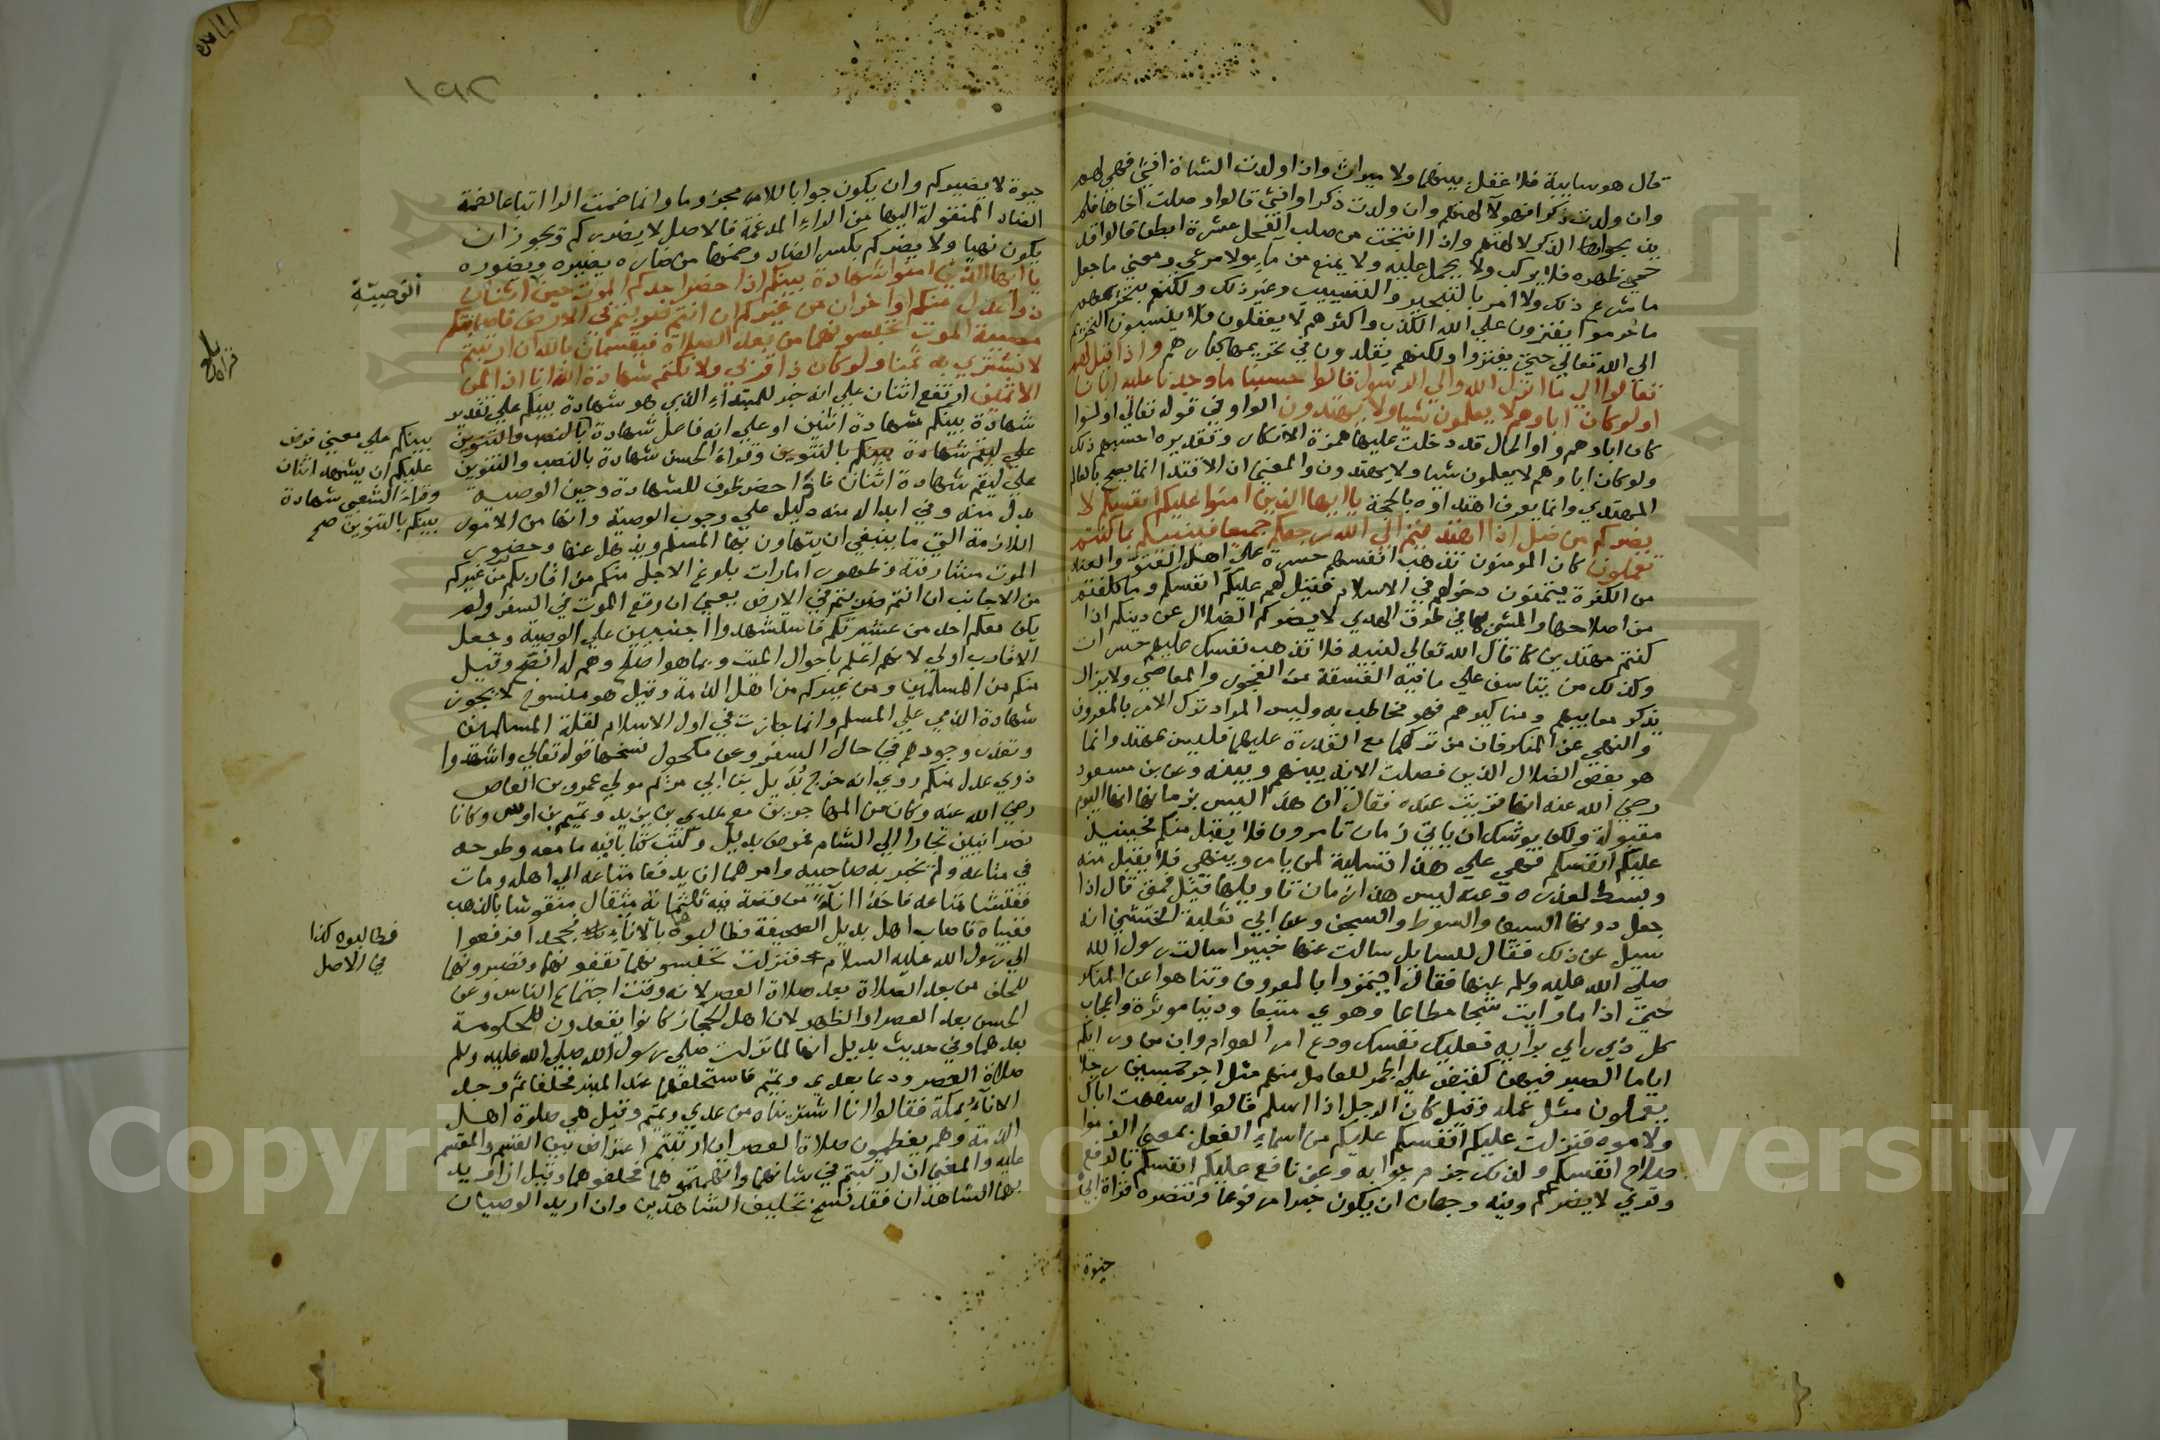 قال هو سايبة فلا عقل بينهما ولا ميراث واذا ولدت الشاة انثي فهي لهم
وان ولدت ذكرا فهو لآلهتهم وان ولدت ذكرا وانثي قالوا وصلت اخاها فلم
يذبحوا الذكر لآلهتهم واذا انتجت من صلب الفحل عشرة ابطن قالوا قد
حمي ظهره فلا يركب ولا يحمل عليه ولا يمنع من ماء ولا مرعي ومعني ما جعل
ما شرع ذلك ولا امر بالتبحير والتسييب وغير ذلك ولكنهم بتحريمهم
ما حرموا يفترون علي الله الكذب واكثرهم لا يعقلون فلا ينسبون التحريم
الي الله تعالي حتي يفتروا ولكنهم يقلدون في تحريمها كبارهم واذا قيل لهم
تعالوا الي ما انزل الله والي الرسول قالوا حسبنا ما وجدنا عليه اباءنا
اولو كان اباوهم لا يعلمون شيا ولا يهتدون الواو في قوله تعالي اولو
كان اباوهم واو الحال قد دخلت عليها همزة الانكار وتقديره احسبهم ذلك
ولو كان اباوهم لا يعلمون شيا ولا يهتدون والمعني ان الاقتدا انما يصح بالعالم
المهتدي وانما يعرف اهتداوه بالحجة يا ايها الذين امنوا عليكم انفسكم لا
يضركم من ضل اذا اهتديتم الي الله مرجعكم جميعا فينبيكم بما كنتم
تعملون كان المومنون تذهب انفسهم حسرة علي اهل العتو والعناد
من الكفرة يتمنون دخولهم في الاسلام فقيل لهم عليكم انفسكم وما كلفتم
من اصلاحها والمشي بها في طرق الهدي لا يضركم الضلال عن دينكم اذا
كنتم مهتدين كما قال الله تعالي لنبيه فلا تذهب نفسك عليهم حسرات
وكذلك من يتاسف علي ما فيه الفسقة من الفجور والمعاصي ولا يزال
يذكر معايبهم ومناكيرهم فهو مخاطب به وليس المراد ترك الامر بالمعروف
والنهي عن المنكر فان من تركهما مع القدرة عليهما فليس بمهتد وانما
هو بعض الضلال الذين فصلت الاية بينهم وبينه وعن بن مسعود
رضي الله عنه انها قريت عنده فقال ان هذا ليس بزمانها انها اليوم
مقبولة ولكن يوشك ان ياتي زمان تامرون فلا يقبل منكم فحينيذ
عليكم انفسكم فهي علي هذا تسلية لمن يامر وينهي فلا يقبل منه
وبسط لعذره وعنه ليس هذا زمان تاويلها قيل فمتي قال اذا
جعل دونها السيف والسوط والسجن وعن ابي ثعلبة الخشني انه
سيل عن ذلك فقال للسايل سالت عنها خبيرا سالت رسول الله
صلي الله عليه وسلم عنها فقال ايتمروا بالمعروف وتناهوا عن المنكر
حتي اذا ما رايت شحا مطاعا وهوي متبعا ودنيا موثرة واعجاب
كل ذي راي برايه فعليك نفسك ودع امر العوام وان من ورايكم
اياما الصبر فيهن كقبض علي الجمر للعامل منهم مثل اجر خمسين رجلا
يعملون مثل عمله وقيل كان الرجل اذا اسلم قالوا له سفهت اباك
ولاموه فنزلت عليكم انفسكم عليكم من اسماء الفعل بمعني الزموا
صلاح انفسكم ولذلك جزم جوابه وعن نافع عليكم انفسكم بالرفع
وقري لا يضركم وفيه وجهان ان يكون خبرا مرفوعا وتنصره قراة ابي
حيوة
١٩٢
حيوة لا يضيركم وان يكون جوابا للامر مجزوما وانما ضمت الرا اتباعا لضمة
الضاد المنقولة اليها من الراء المدغمة فالاصل لا يضرركم ويجوز ان
يكون نهيا ولا يضركم بكسر الضاد وضمها من ضاره يضيره ويضوره
يا ايها الذين امنوا شهادة بينكم اذا حضر احدكم الموت حين اثنان
ذوا عدل منكم او اخران من غيركم ان انتم ضربتم في الارض فاصابتكم
مصيبة الموت تحبسونهما من بعد الصلاة فيقسمان بالله ان ارتبتم
لا نشتري به ثمنا ولو كان ذا قربي ولا نكتم شهادة الله انا اذا لمن
الاثمين ارتفع اثنان علي انه خبر للمبتداء الذي هو شهادة بينكم علي تقدير
شهادة بينكم شهادة اثنين او علي انه فاعل شهادة بالنصب والتنوين
علي ليقم شهادة بينكم بالتنوين وقراة الحسن شهادة بالنصب والتنوين
علي ليقم شهادة اثنان فاذا حضر ظرف للشهادة وحين الوصية
بدل منه وفي ابداله منه دليل علي وجوب الوصية وانها من الامور
اللازمة التي ما ينبغي ان يتهاون بها المسلم ويذهل عنها وحضور
الموت مشارفته وظهور امارات بلوغ الاجل منكم من اقاربكم من غيركم
من الاجانب ان انتم ضربتم في الارض يعني ان وقع الموت في السفر ولم
يكن معكم احد من عشيرتكم فاستشهدوا اجنبيين علي الوصية وجعل
الاقارب اولي لانهم اعلم باحوال الميت وبما هو اصلح وهم له انصح وقيل
منكم من المسلمين ومن غيركم من اهل الذمة وقيل هو منسوخ لا يجوز
شهادة الذمي علي المسلم وانما جازت في اول الاسلام لقلة المسلمين
وتعذر وجودهم في حال السفر وعن مكحول نسخها قوله تعالي واشهدوا
ذوي عدل منكم روي انه خرج بديل بن ابي مريم مولي عمرو بن العاص
رضي الله عنه وكان من المهاجرين مع عدي بن زيد وتميم بن اوس وكانا
نصرانيين تجارا الي الشام فمرض بديل وكتب كتابا فيه ما معه وطرحه
في متاعه ولم يخبر به صاحبيه وامرهما ان يدفعا متاعه الي اهله ومات
ففتشا متاعه فاخذا اناء من فضة فيه ثلثماية مثقال منقوشا بالذهب
فغيباه فاصاب اهل بديل الصحيفة فطالبوهما بالاناء فجحدا فرفعوا
الي رسول الله عليه السلام فنزلت تحبسونهما تقفونهما وتصبرونهما
للحلف من بعد الصلاة بعد صلاة العصر لانه وقت اجتماع الناس وعن
الحسن بعد العصر او الظهر لان اهل الحجاز كانوا يقعدون للحكومة
بعدهما وفي حديث بديل انها لما نزلت صلي رسول الله صلي الله عليه وسلم
صلاة العصر ودعا بعدي وتميم فاستحلفهما عند المنبر فحلفا ثم وجد
الاناء بمكة فقالوا انا اشتريناه من عدي وتميم وقيل هي صلوة اهل
الذمة وهم يعظمون صلاة العصر ان ارتبتم اعتراض بين القسم والمقسم
عليه والمعني ان ارتبتم في شانهما واتهمتموهما فحلفوهما وقيل ان اريد
بهما الشاهدان فقد نسخ تحليف الشاهدين وان اريد الوصيان
الوصية
بلغ
قراة
بينكم علي معني فرض
عليكم ان يشهد اثنان
وقراة الشعبي شهادة
بينكم بالتنوين صح
فطالبوه كذا
في الاصل
Copyright © King Saud University